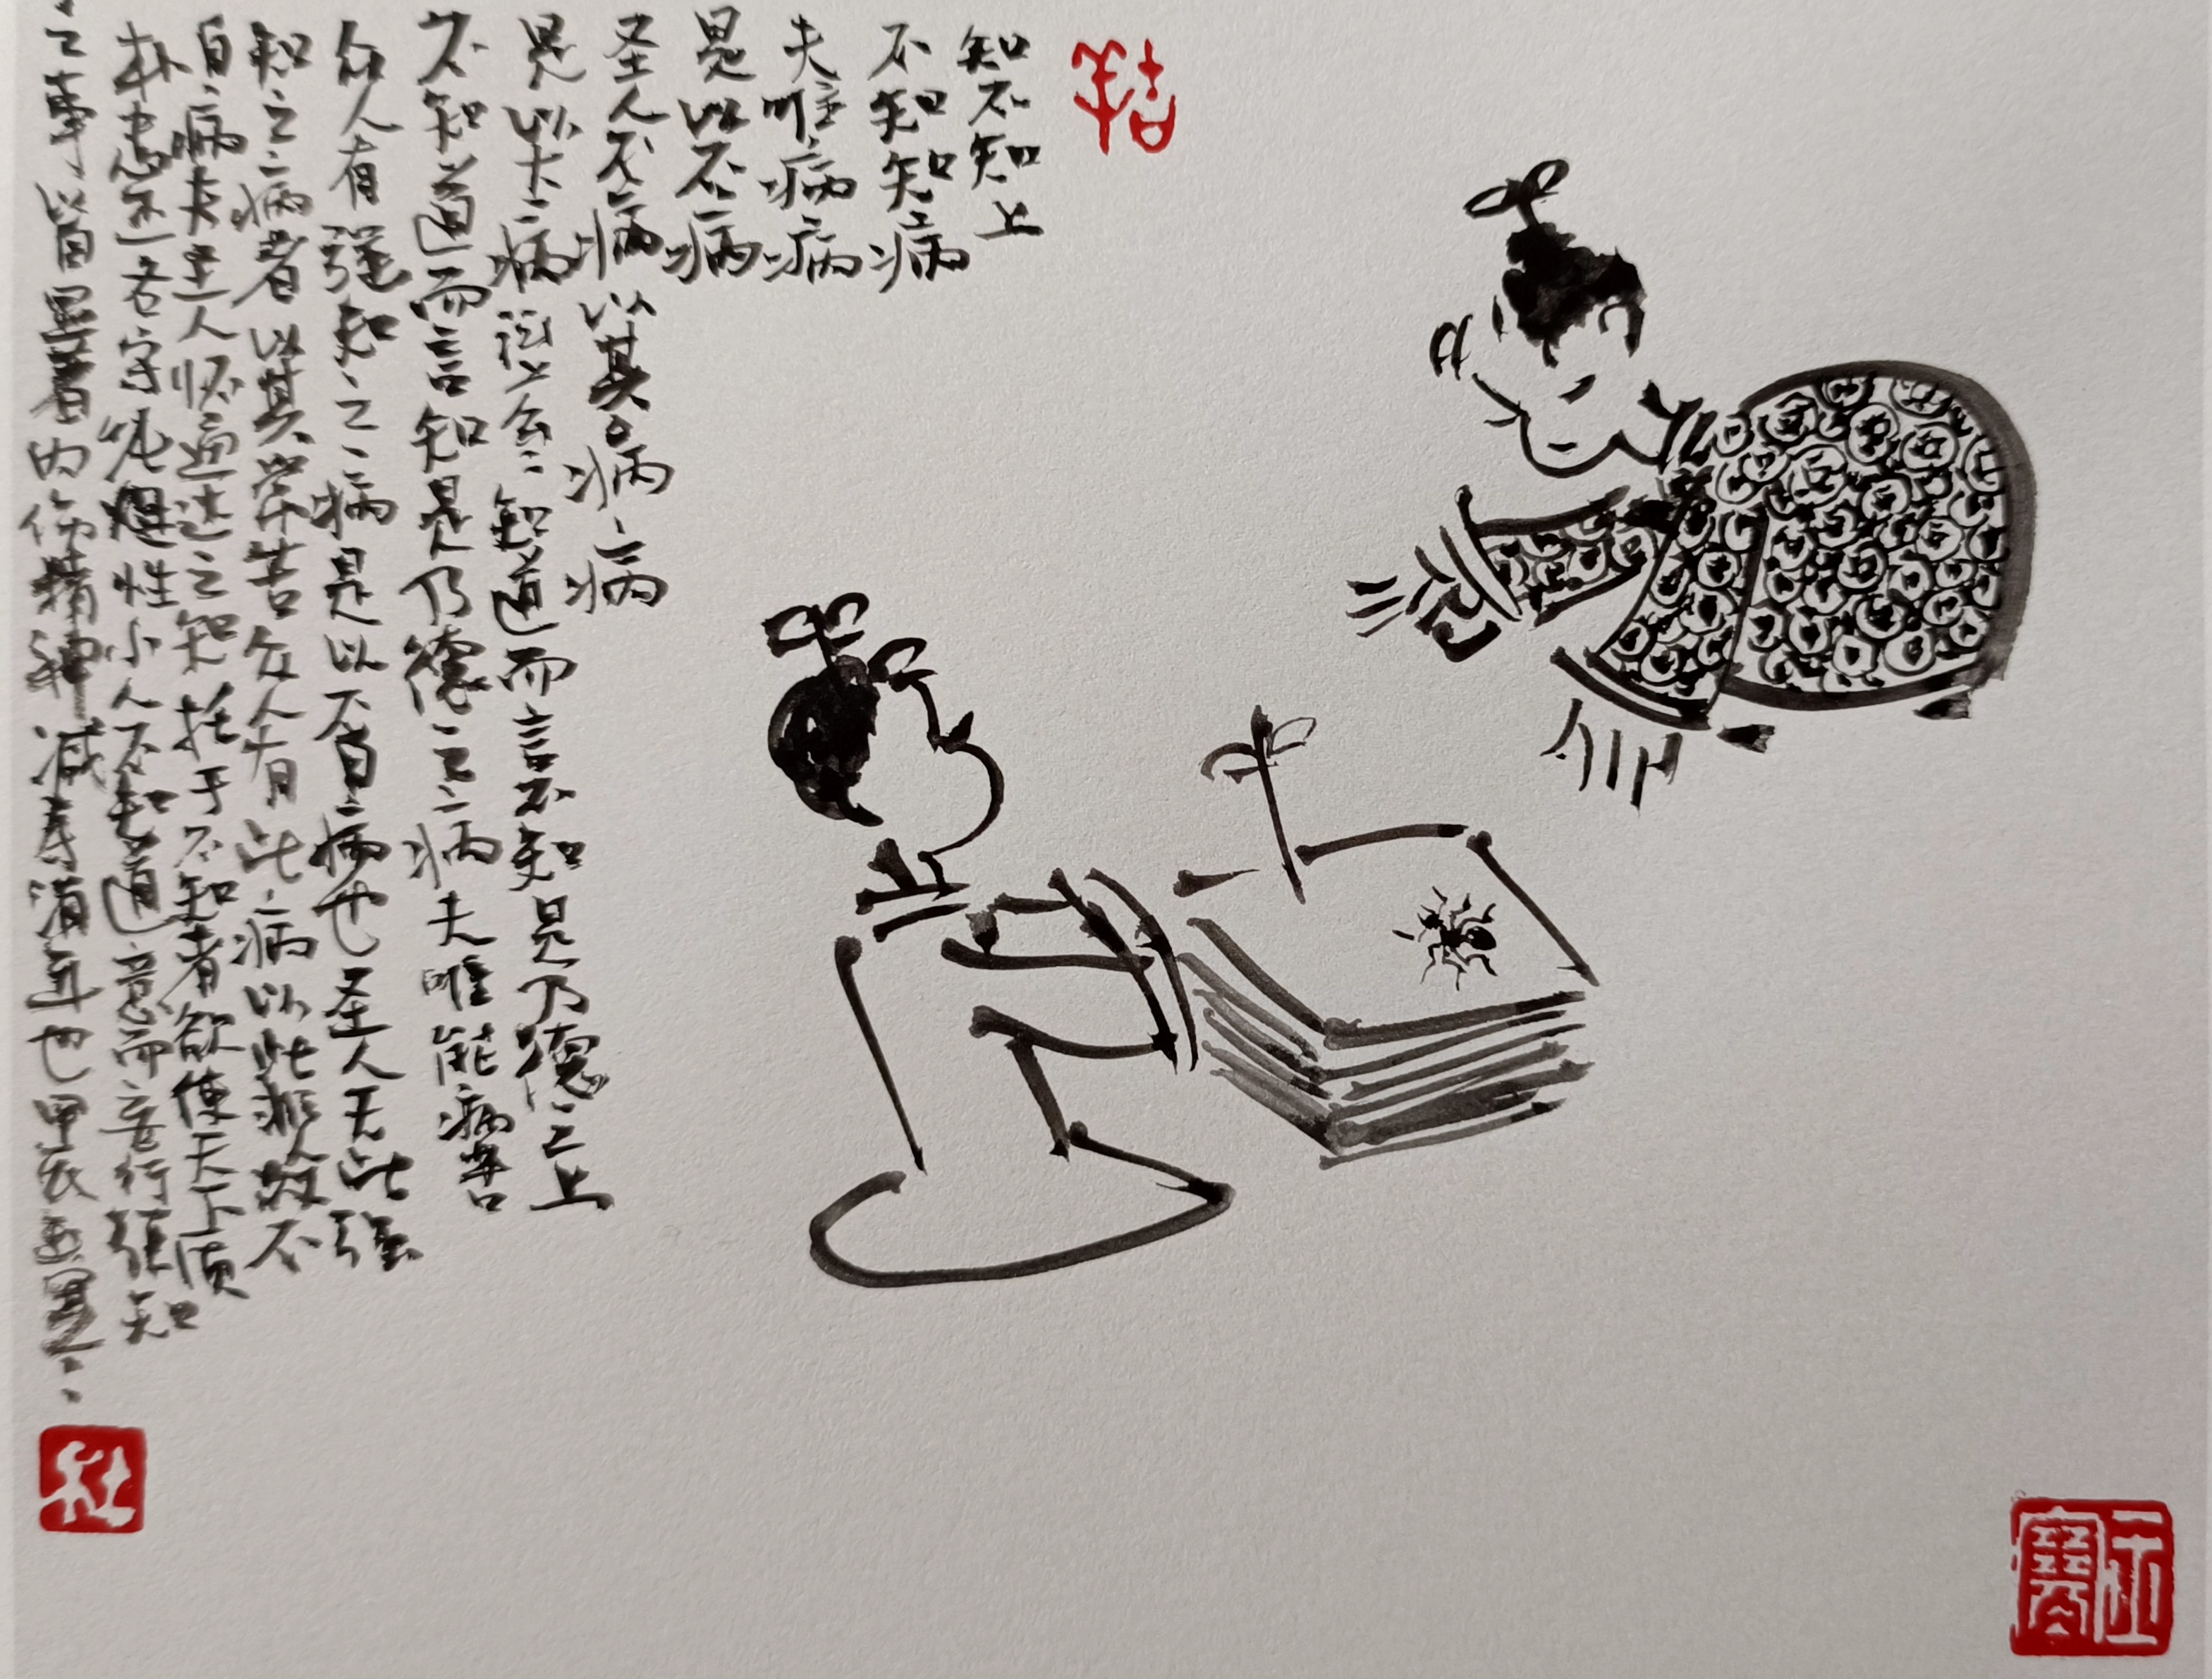 吉羊
知不知上
不知知病
夫唯病病
是以不病
圣人不病以其病病
是以不病河上公云知道而言不知是乃德之上
不知道而言知是乃德之病夫唯能病苦
众人有强知之病是以不自病也圣人无此强
知之病者以其常苦众人有此病以此非人故不
自病夫圣人怀通达之知托于不知者欲使天下质
朴忠正各守纯性小人不知道意而妄行强知
之事以自显著内伤精神减寿消年也甲辰